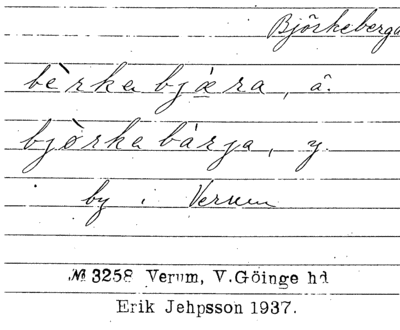 Björkeberga
bèrka bjæra, å.
bjòrka bárja, y.
by i Verum
№ 3258 Verum, V.Göinge hd
Erik Jehpsson 1937.